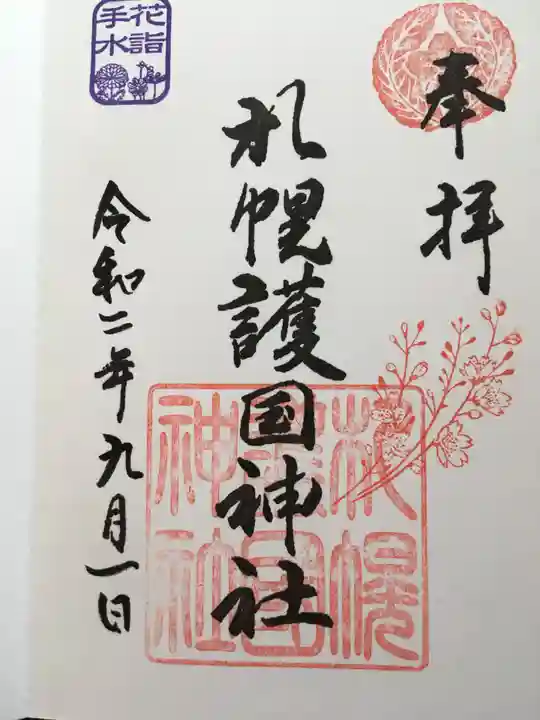 奉拝
札幌護国神社
札幌
護国
神社
花詣
手水
令和二年九月一日